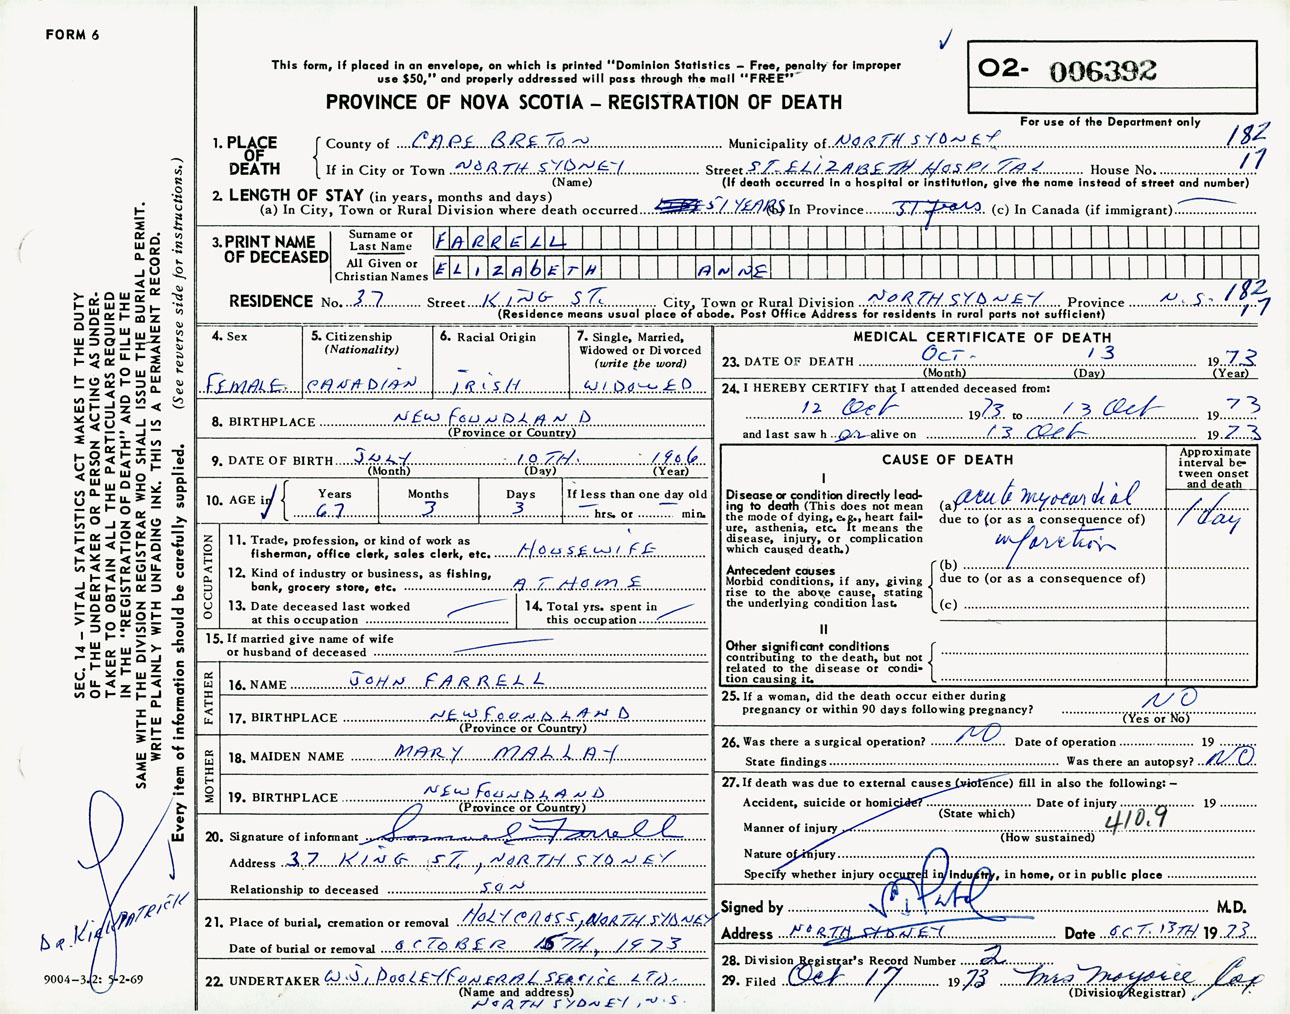 FORM 6
This form, if placed in an envelope, on which is printed "Dominion Statistics – Free, penalty for improper
use $50," and properly addressed will pass through the mail "FREE"
PROVINCE OF NOVA SCOTIA – REGISTRATION OF DEATH
02- 006392
For use of the Department only
1. PLACE OF DEATH
County of CAPE BRETON Municipality of NORTH SYDNEY 182
If in City or Town NORTH SYDNEY Street ST. ELIZABETH HOSPITAL House No. 17
(Name) (If death occurred in a hospital or institution, give the name instead of street and number)
2. LENGTH OF STAY (in years, months and days)
(a) In City, Town or Rural Division where death occurred 51 YEARS (b) In Province 51 years (c) In Canada (if immigrant)
3. PRINT NAME OF DECEASED
Surname or Last Name FARRELL
All Given or Christian Names ELIZABETH ANNE
RESIDENCE No. 37 Street KING ST. City, Town or Rural Division NORTH SYDNEY Province N.S. 182
17
(Residence means usual place of abode. Post Office Address for residents in rural parts not sufficient)
4. Sex
FEMALE
5. Citizenship
(Nationality)
CANADIAN
6. Racial Origin
IRISH
7. Single, Married,
Widowed or Divorced
(write the word)
WIDOWED
8. BIRTHPLACE NEWFOUNDLAND
(Province or Country)
9. DATE OF BIRTH JULY 10TH. 1906
(Month) (Day) (Year)
10. AGE in
Years Months Days If less than one day old
67 3 3 hrs. or min.
OCCUPATION
11. Trade, profession, or kind of work as
fisherman, office clerk, sales clerk, etc. HOUSEWIFE
12. Kind of industry or business, as fishing,
bank, grocery store, etc. AT HOME
13. Date deceased last worked
at this occupation
14. Total yrs. spent in
this occupation
15. If married give name of wife
or husband of deceased
FATHER
16. NAME JOHN FARRELL
17. BIRTHPLACE NEWFOUNDLAND
(Province or Country)
MOTHER
18. MAIDEN NAME MARY MALLAY
19. BIRTHPLACE NEWFOUNDLAND
(Province or Country)
20. Signature of informant Samuel Farrell
Address 37 KING ST., NORTH SYDNEY
Relationship to deceased SON
21. Place of burial, cremation or removal HOLY CROSS, NORTH SYDNEY
Date of burial or removal OCTOBER 15TH, 1973
22. UNDERTAKER W.J. DOOLEY FUNERAL SERVICE LTD.
(Name and address)
NORTH SYDNEY, N.S.
MEDICAL CERTIFICATE OF DEATH
23. DATE OF DEATH OCT. 13 1973
(Month) (Day) (Year)
24. I HEREBY CERTIFY that I attended deceased from:
12 Oct 1973 to 13 Oct 1973
and last saw h er alive on 13 Oct 1973
CAUSE OF DEATH
Approximate
interval be-
tween onset
and death
I
Disease or condition directly lead-
ing to death (This does not
mean the mode of dying, e.g., heart fail-
ure, asthenia, etc. It means the
disease, injury, or complication
which caused death.)
(a) acute myocardial
due to (or as a consequence of)
infarction
1 day
Antecedent causes
Morbid conditions, if any, giving
rise to the above cause, stating
the underlying condition last.
(b)
due to (or as a consequence of)
(c)
II
Other significant conditions
contributing to the death, but not
related to the disease or condi-
tion causing it.
25. If a woman, did the death occur either during
pregnancy or within 90 days following pregnancy? NO
(Yes or No)
26. Was there a surgical operation? NO Date of operation 19
State findings Was there an autopsy? NO
27. If death was due to external causes (violence) fill in also the following: –
Accident, suicide or homicide? Date of injury 19
(State which)
Manner of injury 410.9
(How sustained)
Nature of injury
Specify whether injury occurred in industry, in home, or in public place
Signed by M.D.
Address NORTH SYDNEY Date OCT. 13TH 1973
28. Division Registrar's Record Number 2
29. Filed Oct 17 1973 Mrs Marjorie Cox
(Division Registrar)
SEC. 14 – VITAL STATISTICS ACT MAKES IT THE DUTY
OF THE UNDERTAKER OR PERSON ACTING AS UNDER-
TAKER TO OBTAIN ALL THE PARTICULARS REQUIRED
IN THE "REGISTRATION OF DEATH" AND TO FILE THE
SAME WITH THE DIVISION REGISTRAR WHO SHALL ISSUE THE BURIAL PERMIT.
WRITE PLAINLY WITH UNFADING INK. THIS IS A PERMANENT RECORD.
Every item of information should be carefully supplied. (See reverse side for instructions.)
DR. KIRKPATRICK
9004-3.2: 5-2-69